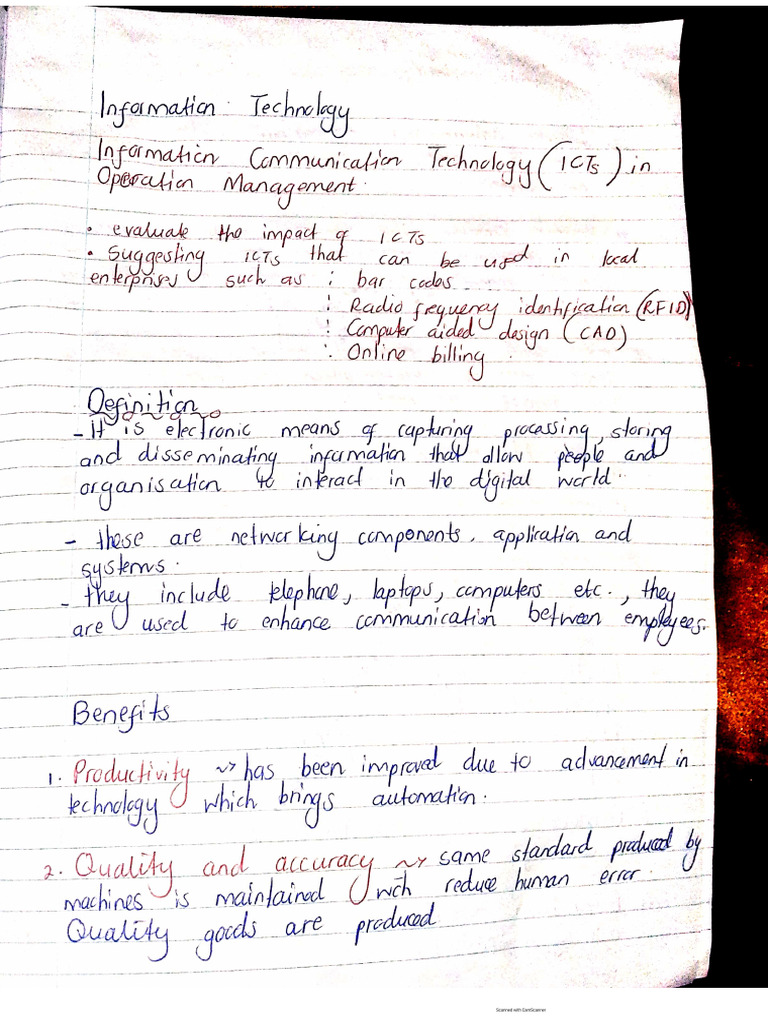 Information Technology
Information Communication Technology (ICTs) in
Operation Management.
• evaluate the impact of ICTs
• Suggesting ICTs that can be used in local
enterprises such as : bar codes
: Radio frequency identification (RFID)
: Computer aided design (CAD)
: Online billing.
Definition
- It is electronic means of capturing processing, storing
and disseminating information that allow people and
organisation to interact in the digital world.
- these are networking components, application and
systems.
- they include telephone, laptops, computers etc., they
are used to enhance communication between employees.
Benefits
1. Productivity ~> has been improved due to advancement in
technology which brings automation.
2. Quality and accuracy ~> same standard produced by
machines is maintained wch reduce human error.
Quality goods are produced
Scanned with CamScanner